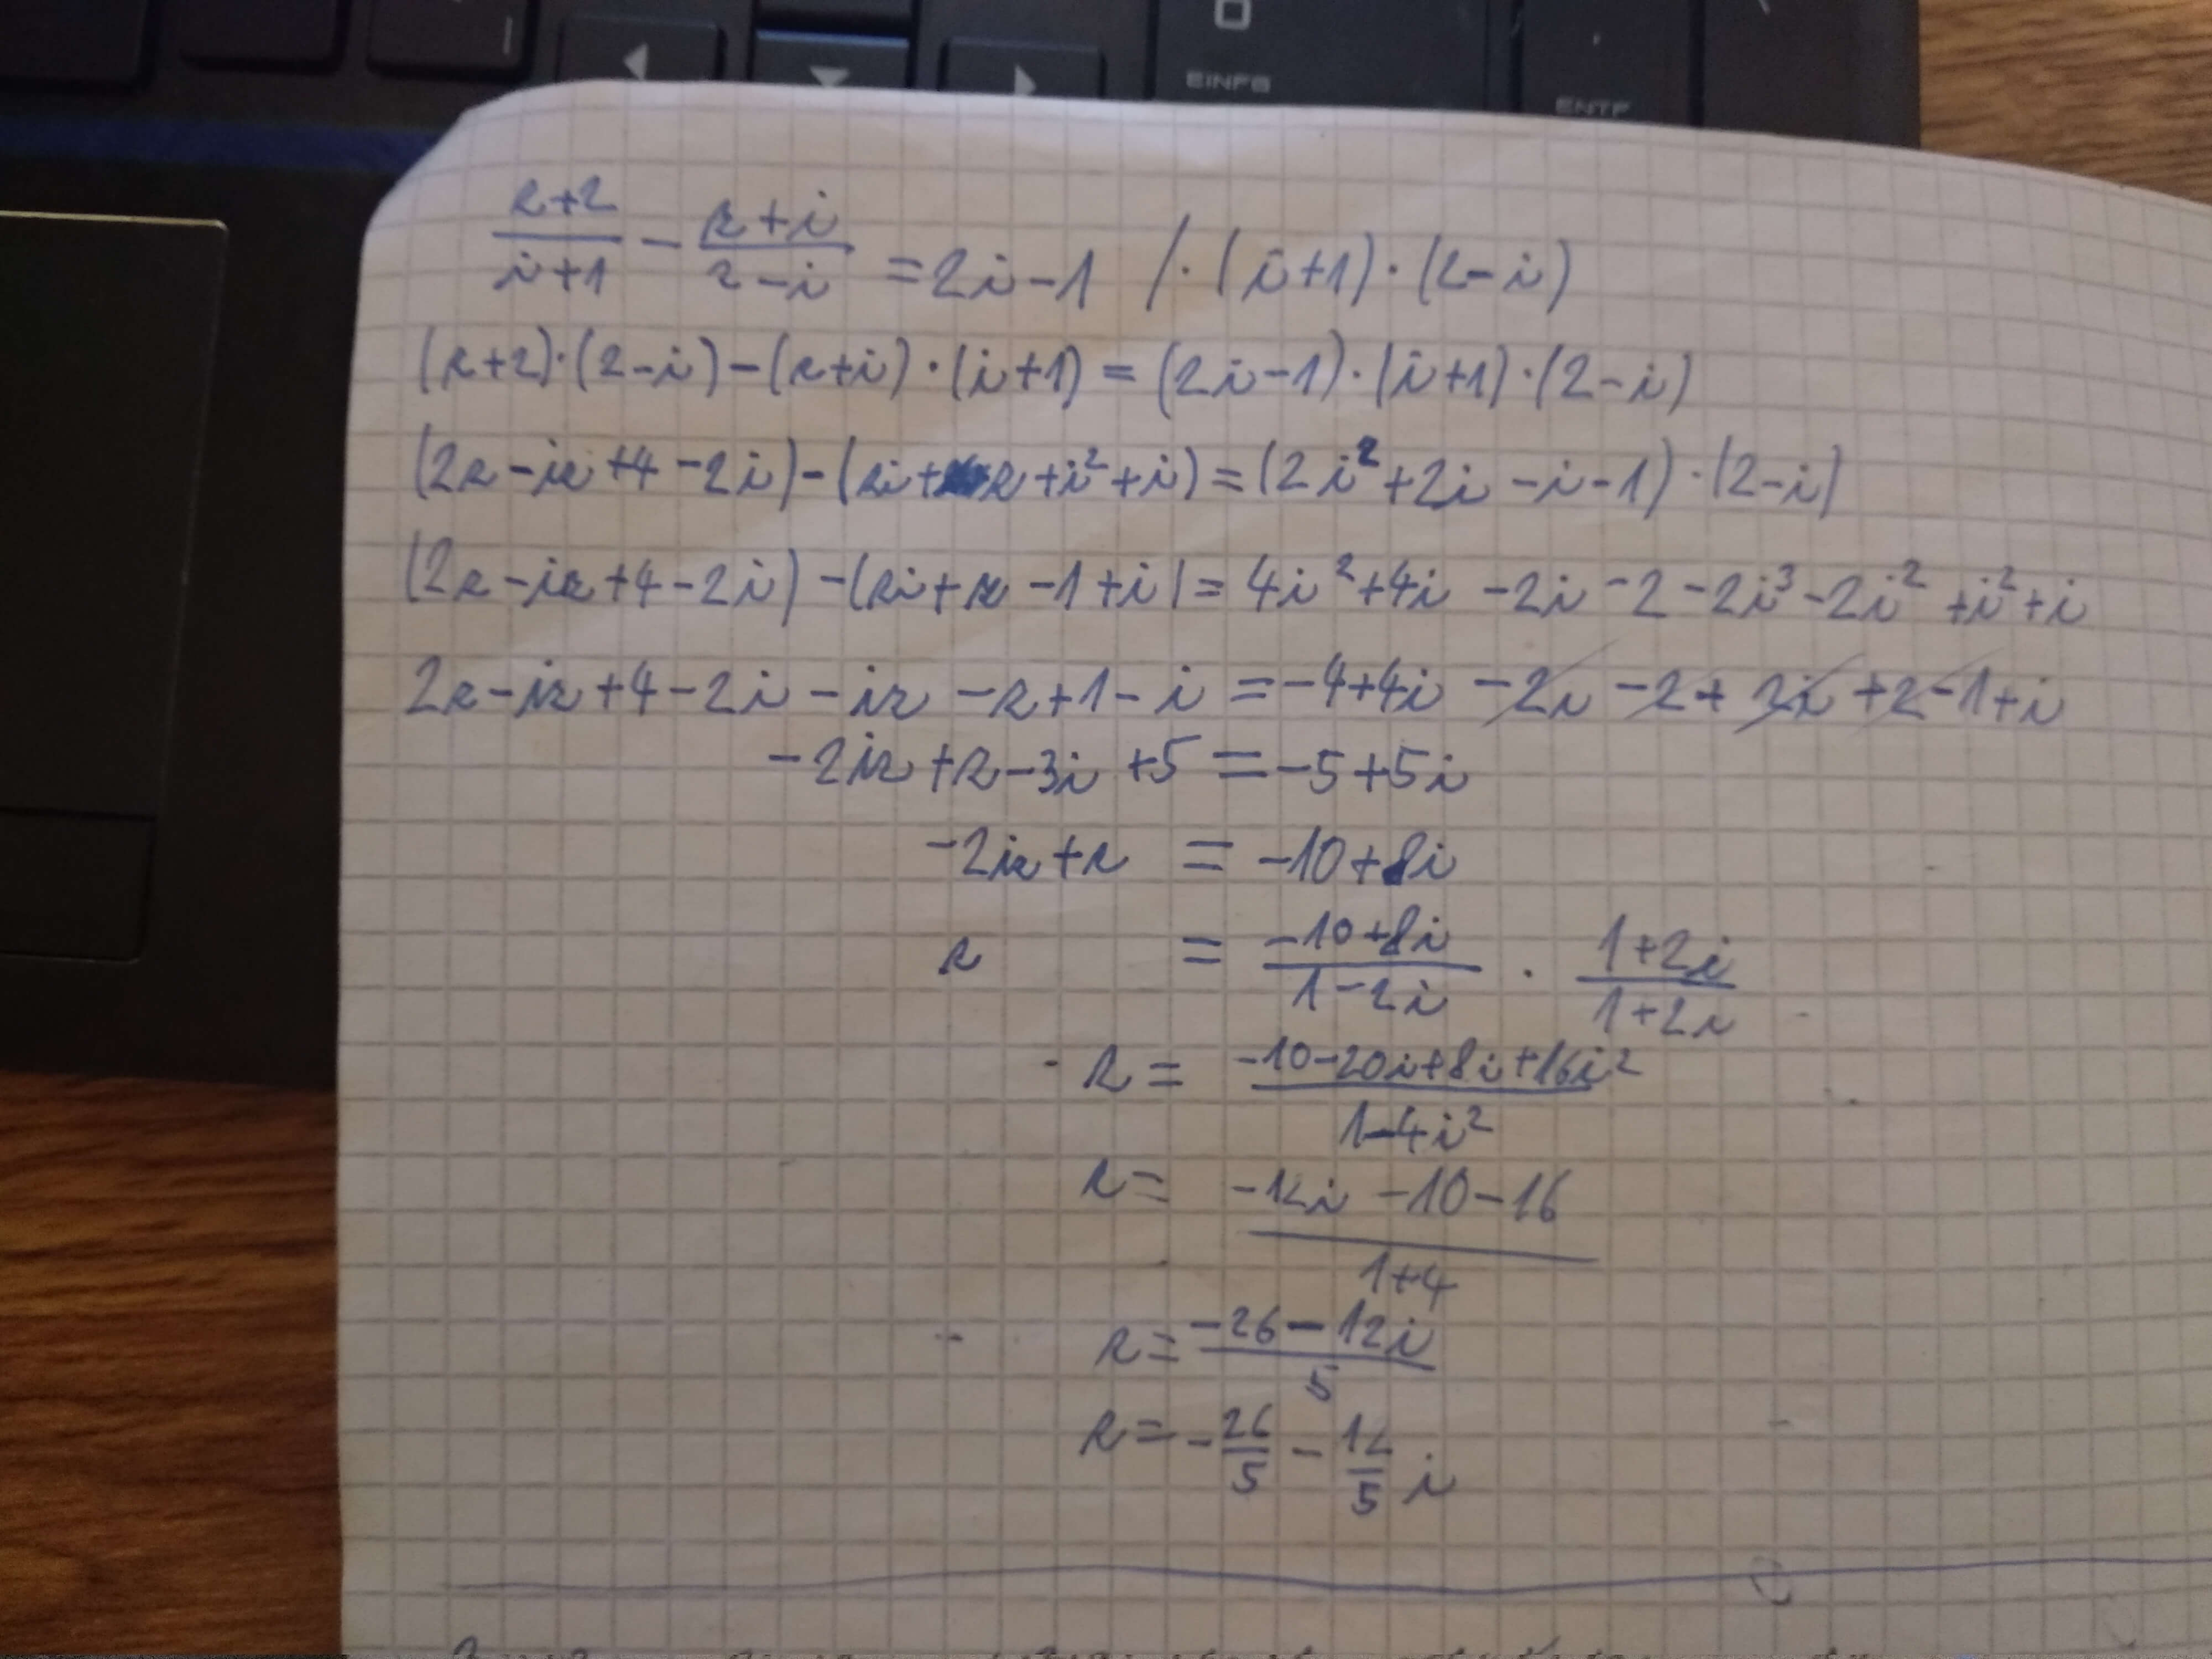 EINFG
ENTF
(z+2)/(i+1) - (z+i)/(2-i) = 2i-1 /·(i+1)·(2-i)
(z+2)·(2-i)-(z+i)·(i+1) = (2i-1)·(i+1)·(2-i)
(2z-iz+4-2i)-(zi+z+i²+i) = (2i²+2i-i-1)·(2-i)
(2z-iz+4-2i)-(zi+z-1+i) = 4i²+4i-2i-2-2i³-2i²+i²+i
2z-iz+4-2i-iz-z+1-i = -4+4i-2i-2+2i+2-1+i
-2iz+z-3i+5 = -5+5i
-2iz+z = -10+8i
z = (-10+8i)/(1-2i) · (1+2i)/(1+2i)
z = (-10-20i+8i+16i²)/(1-4i²)
z = (-12i-10-16)/(1+4)
z = (-26-12i)/5
z = -26/5 - 12/5 i